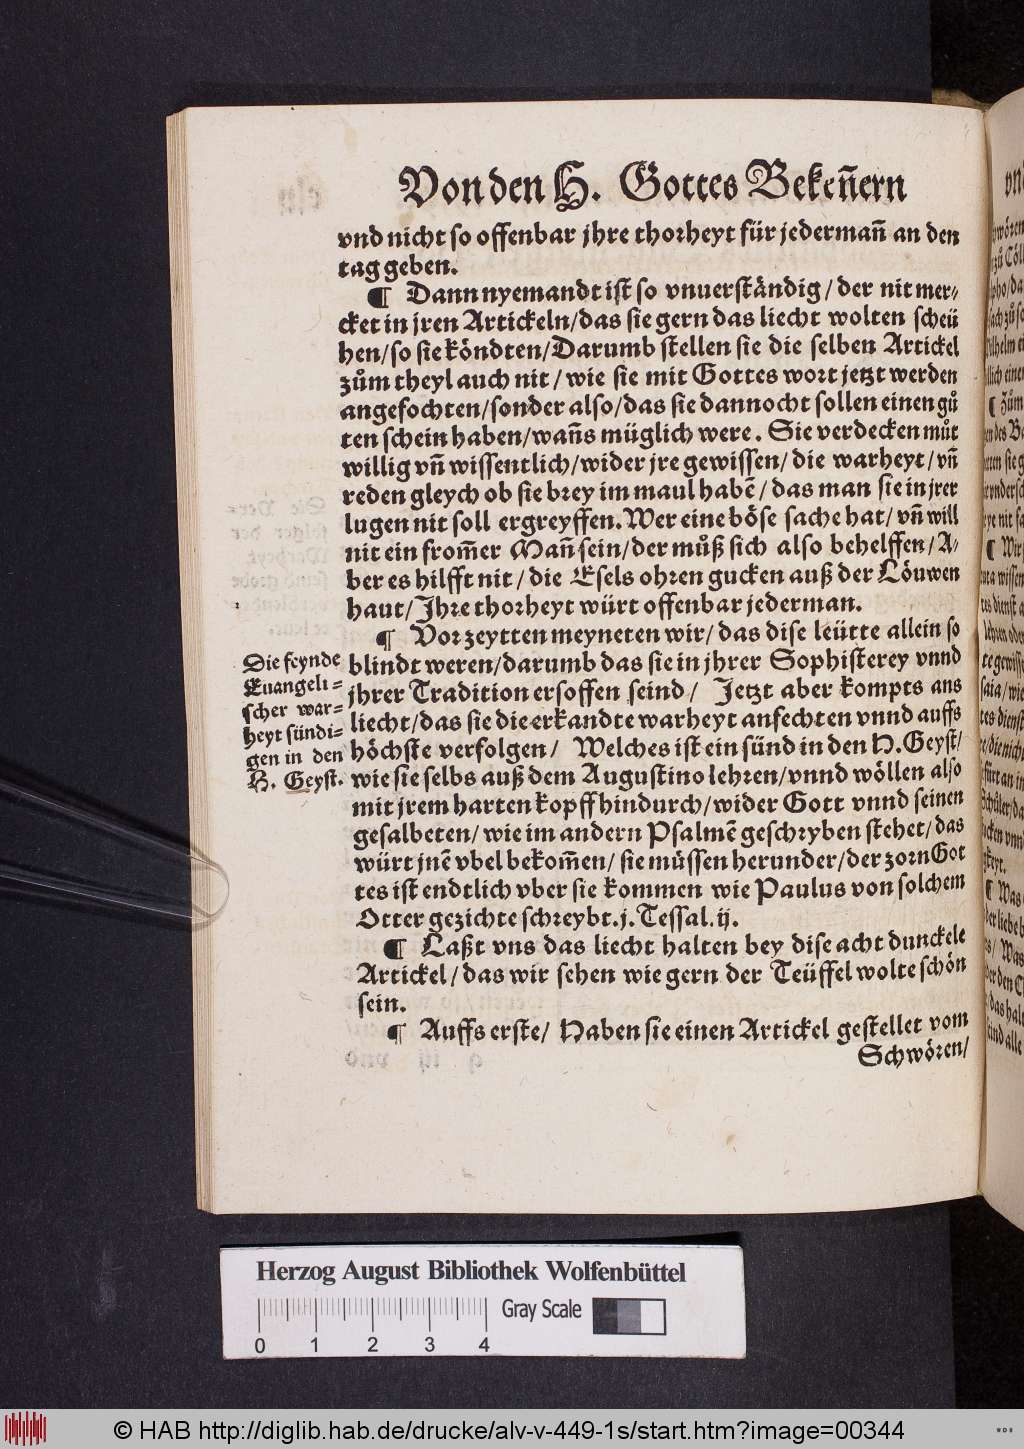 Von den H. Gottes Bekeñern
vnd nicht so offenbar jhre thorheyt für jedermañ an den
tag geben.
¶ Dann nyemandt ist so vnuerständig / der nit mer-
cket in jren Artickeln / das sie gern das liecht wolten scheü
hen / so sie köndten / Darumb stellen sie die selben Artickel
zům theyl auch nit / wie sie mit Gottes wort jetzt werden
angefochten / sonder also / das sie dannocht sollen einen gů
ten schein haben / wañs müglich were. Sie verdecken můt
willig vñ wissentlich / wider jre gewissen / die warheyt / vñ
reden gleych ob sie brey im maul habẽ / das man sie in jrer
lugen nit soll ergreyffen. Wer eine böse sache hat / vñ will
nit ein from̃er Mañ sein / der můß sich also behelffen / A-
ber es hilfft nit / die Esels ohren gucken auß der Löuwen
haut / Jhre thorheyt würt offenbar jederman.
¶ Vor zeytten meyneten wir / das dise leütte allein so
blindt weren / darumb das sie in jhrer Sophisterey vnnd
jhrer Tradition ersoffen seind / Jetzt aber kompts ans
liecht / das sie die erkandte warheyt anfechten vnnd auffs
höchste verfolgen / Welches ist ein sünd in den H. Geyst /
wie sie selbs auß dem Augustino lehren / vnnd wöllen also
mit jrem harten kopff hindurch / wider Gott vnnd seinen
gesalbeten / wie im andern Psalmẽ geschryben stehet / das
würt jnẽ vbel bekom̃en / sie müssen herunder / der zorn Got
tes ist endtlich vber sie kommen wie Paulus von solchem
Otter gezichte schreybt. j. Tessal. ij.
¶ Laßt vns das liecht halten bey dise acht dunckele
Artickel / das wir sehen wie gern der Teüffel wolte schön
sein.
¶ Auffs erste / Haben sie einen Artickel gestellet vom
Schwören /
Die feynde
Euangeli=
scher war=
heyt sündi=
gen in den
H. Geyst.
Herzog August Bibliothek Wolfenbüttel
Gray Scale
0 1 2 3 4
© HAB http://diglib.hab.de/drucke/alv-v-449-1s/start.htm?image=00344